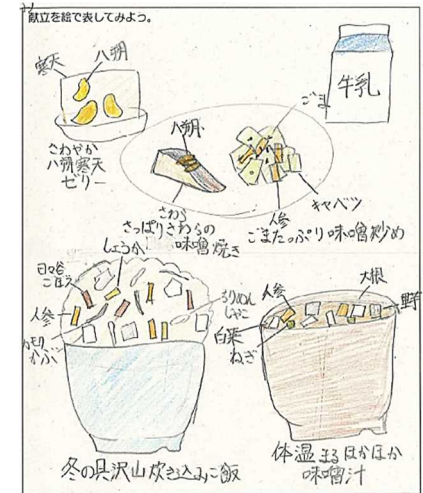 献立を絵で表してみよう。
寒天
八朔
さわやか
八朔寒天
ゼリー
八朔
ごま
牛乳
さわら
さっぱりさわらの
味噌焼き
人参
キャベツ
ごまたっぷり味噌炒め
しょうが
日々谷
ごぼう
人参
かぶ
ちりめん
じゃこ
冬の具沢山炊き込みご飯
人参
大根
白菜
ねぎ
体温まるほかほか
味噌汁